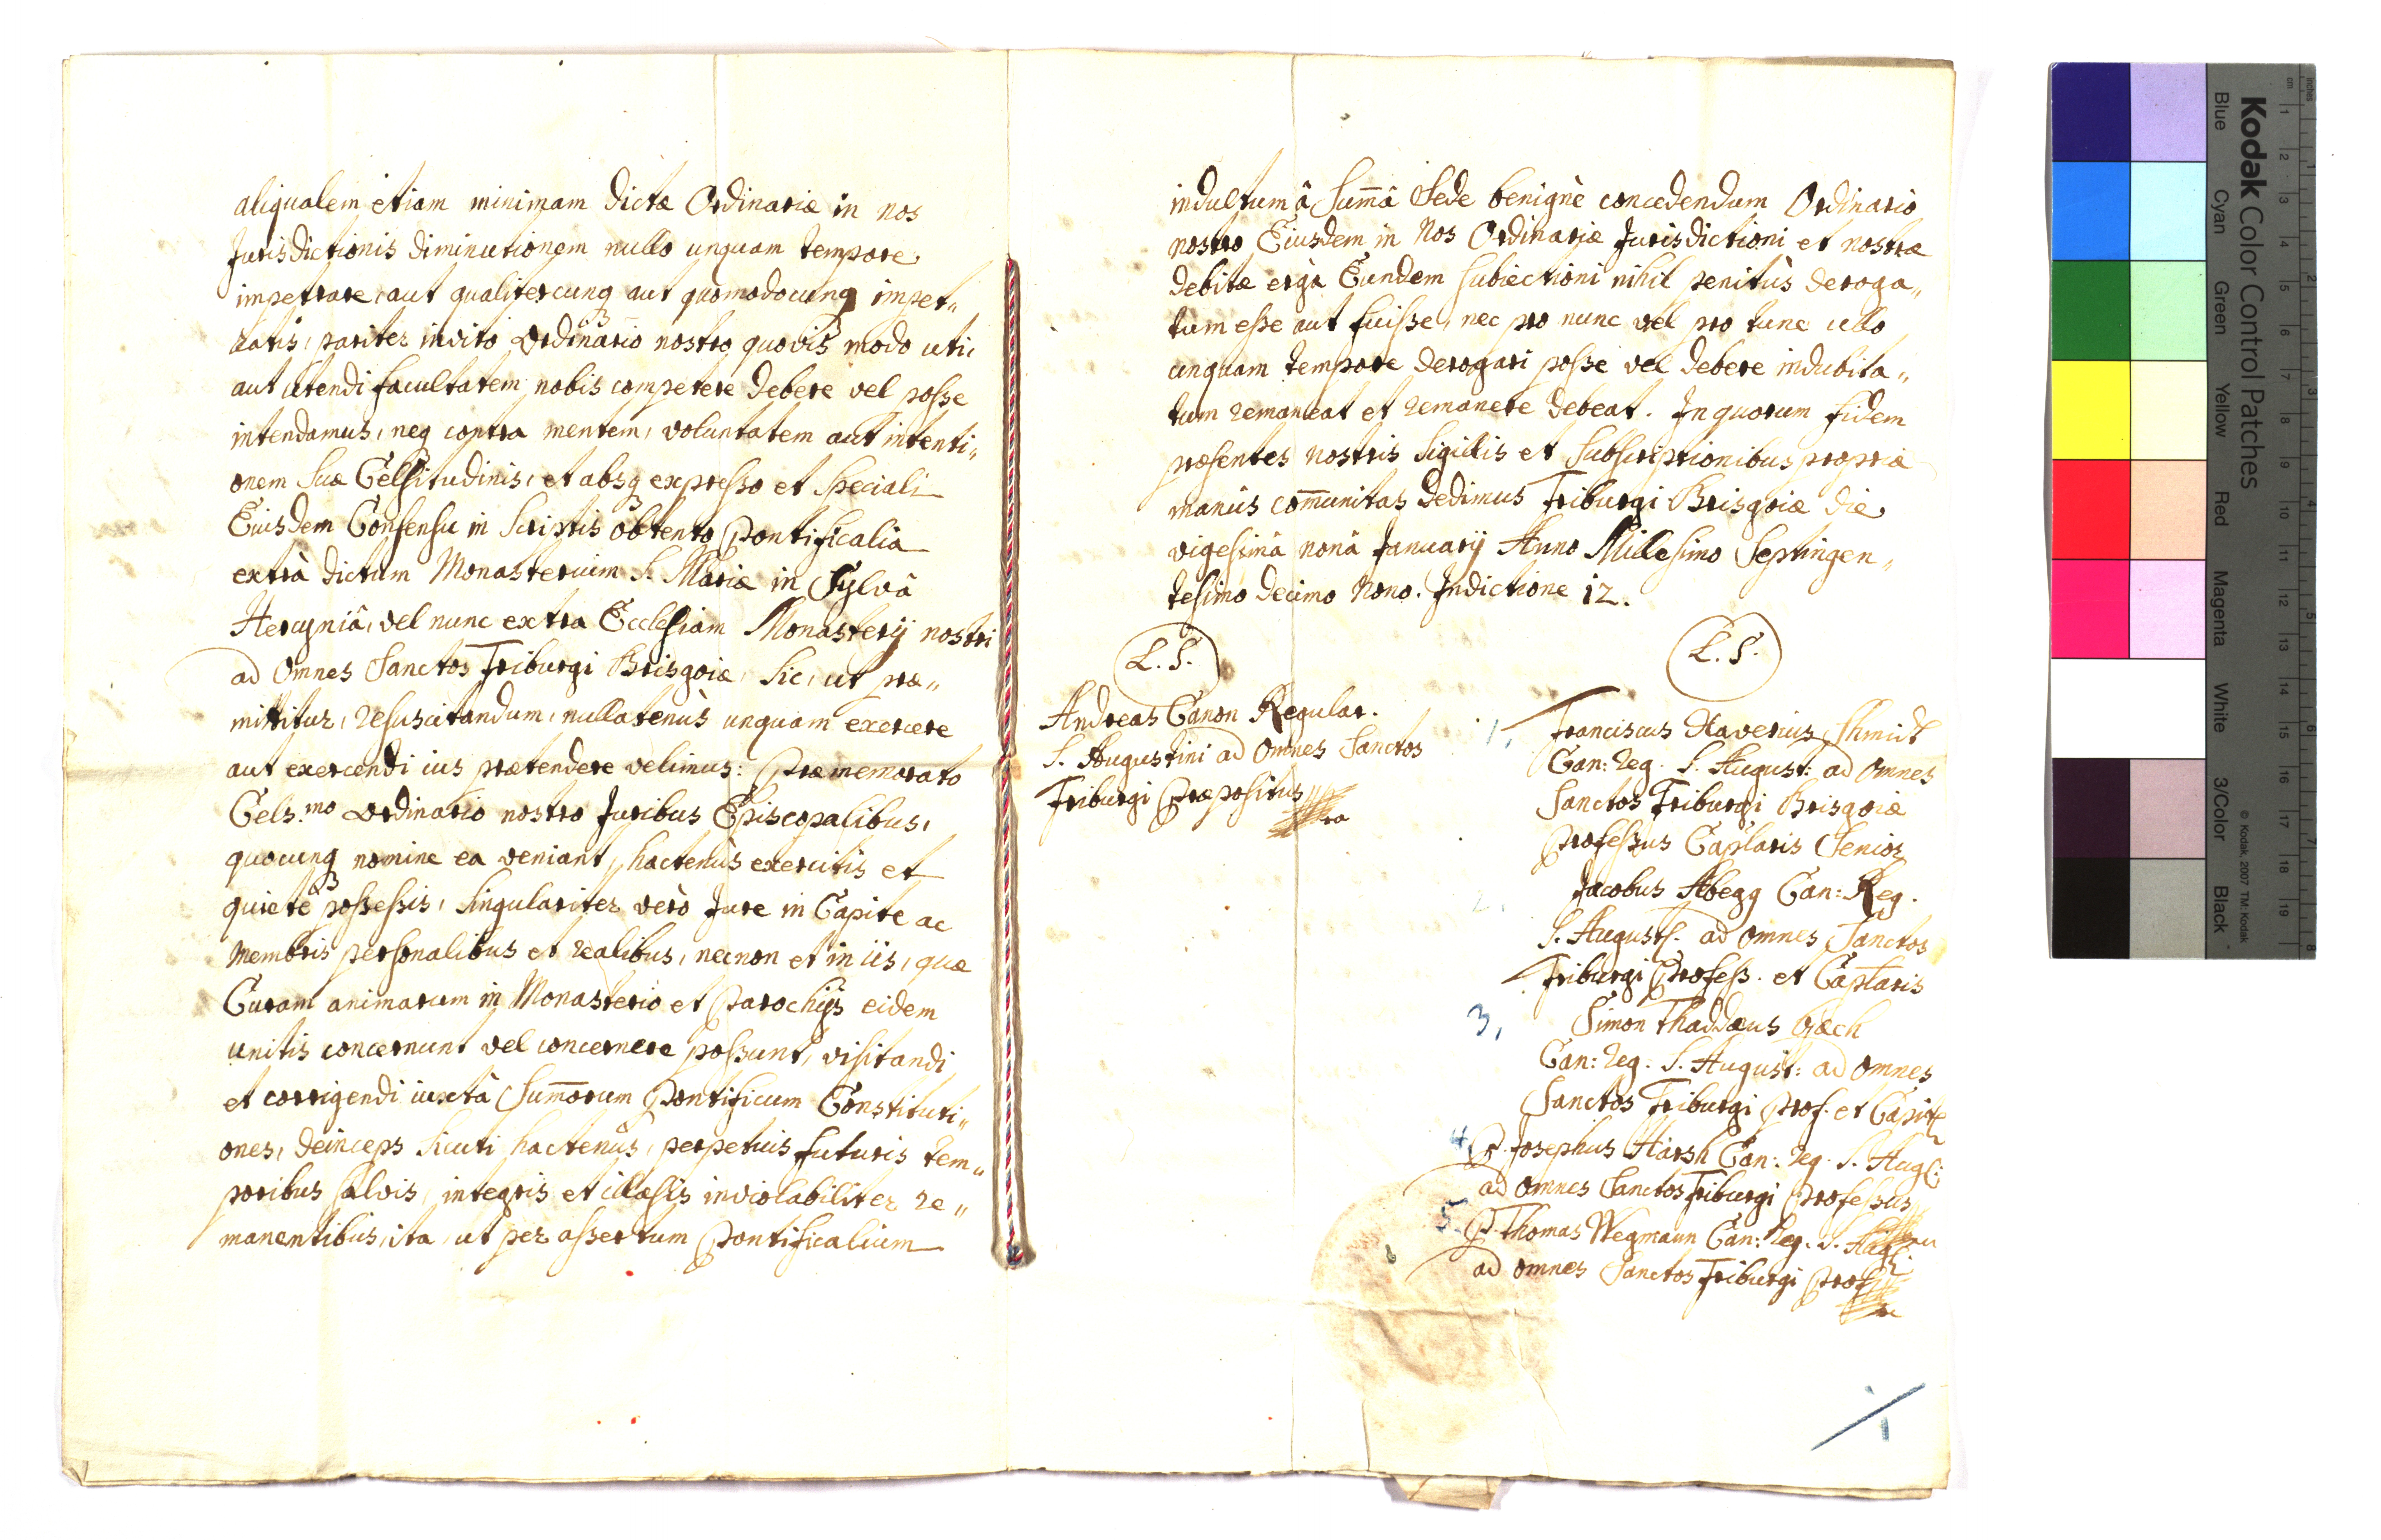 aliqualem etiam minimam dictæ Ordinariæ in nos
Jurisdictionis diminutionem nullo unquam tempore
impetrare, aut qualitercunq3 aut quomodocunq3 impet„
ratis, pariter invito Ordinario nostro, quovis modo uti,
aut utendi facultatem nobis competere debere vel posse
intendamus, neq3 contra mentem, voluntatem aut intenti„
onem Suæ Celsitudinis, et absq3 expresso et speciali
Eiusdem Consensu in Scriptis obtento Pontificalia
extrà dictum Monasterium S. Mariæ in Sylvâ
Hercyniâ, vel nunc extra Ecclesiam Monasterij nostri
ad Omnes Sanctos Friburgi Brisgoiæ, sic, ut præ„
mittitur, resuscitandum, nullatenùs unquam exercere
aut exercendi ius prætendere velimus: Præmemorato
Cels.mo Ordinario nostro Juribus Episcopalibus,
quocunq3 nomine ea veniant, hactenùs exercitis et
quietè possessis, singulariter verò Jure in Capite ac
Membris personalibus et realibus, necnon et in iis, quæ
Curam animarum in Monasterio et Parochijs eidem
unitis concernunt vel concernere possunt, visitandi
et corrigendi iuxtà Sum̄orum Pontificum Constituti„
ones, deinceps sicuti hactenùs, perpetuis futuris tem„
poribus salvis, integris et illæsis inviolabiliter re„
manentibus, ita, ut per assertum Pontificalium
indultum â Sum̄â Sede benignè concedendum Ordinario
nostro Eiusdem in Nos Ordinariæ Jurisdictioni et nostræ
debitæ ergà Eundem subiectioni nihil penitùs deroga„
tum esse aut fuisse, nec pro nunc vel pro tunc ullo
unquam tempore derogari posse vel debere indubita„
tum remaneat et remanere debeat. In quorum fidem
præsentes nostris Sigillis et Subscriptionibus propriæ
manûs com̄unitas dedimus Friburgi Brisgoiæ die
vigesimâ nonâ Januarij Anno Millesimo Septingen„
tesimo decimo Nono. Indictione 12.
L. S.
Andreas Canon Regular.
S. Augustini ad Omnes Sanctos
Friburgi Præpositus
L. S.
1, Franciscus Xaverius Shmidt
Can: Reg. S. August: ad Omnes
Sanctos Friburgi Brisgoiæ
Professus Caplaris Senior
2. Jacobus Abegg Can: Reg.
S. August. ad omnes Sanctos
Friburgi Profess. et Caplaris
3, Simon Thaddæus
Can: Reg. S. August: ad Omnes
Sanctos Friburgi Prof. et Capit
4, P. Josephus Harsh Can: Reg. S. Aug:
ad Omnes Sanctos Friburgi Professus
5. P. Thomas Wegmann Can: Reg. S. Aug:
ad omnes Sanctos Friburgi Prof
1
Kodak Color Control Patches
Blue Cyan Green Yellow Red Magenta White 3/Color Black
© Kodak, 2007 TM: Kodak
inches 1 2 3 4 5 6 7 8
cm 1 2 3 4 5 6 7 8 9 10 11 12 13 14 15 16 17 18 19